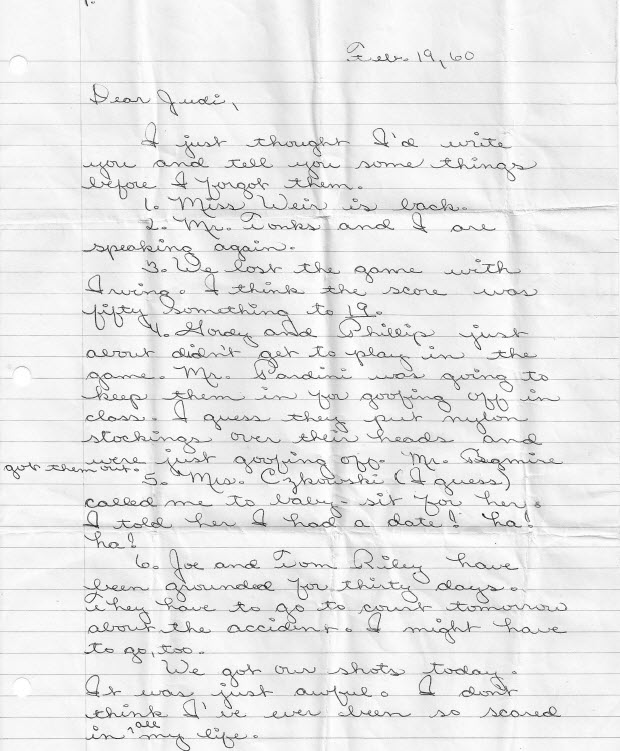 1.
Feb. 19, 60
Dear Judi,
I just thought I'd write
you and tell you some things
before I forgot them.
1. Miss Weir is back.
2. Mr. Tonks and I are
speaking again.
3. We lost the game with
Irving. I think the score was
fifty something to 19.
4. Howdy and Phillip just
about didn't get to play in the
game. Mr. Pardini was going to
keep them in for goofing off in
class. I guess they put nylon
stockings over their heads and
were just goofing off. Mr.
got them out.
5. Mrs. Czkowski (I guess)
called me to baby-sit for her.
I told her I had a date! ha!
ha!
6. Joe and Tom Riley have
been grounded for thirty days.
They have to go to court tomorrow
about the accident. I might have
to go, too.
We got our shots today.
It was just awful. I don't
think I've ever been so scared
in all my life.